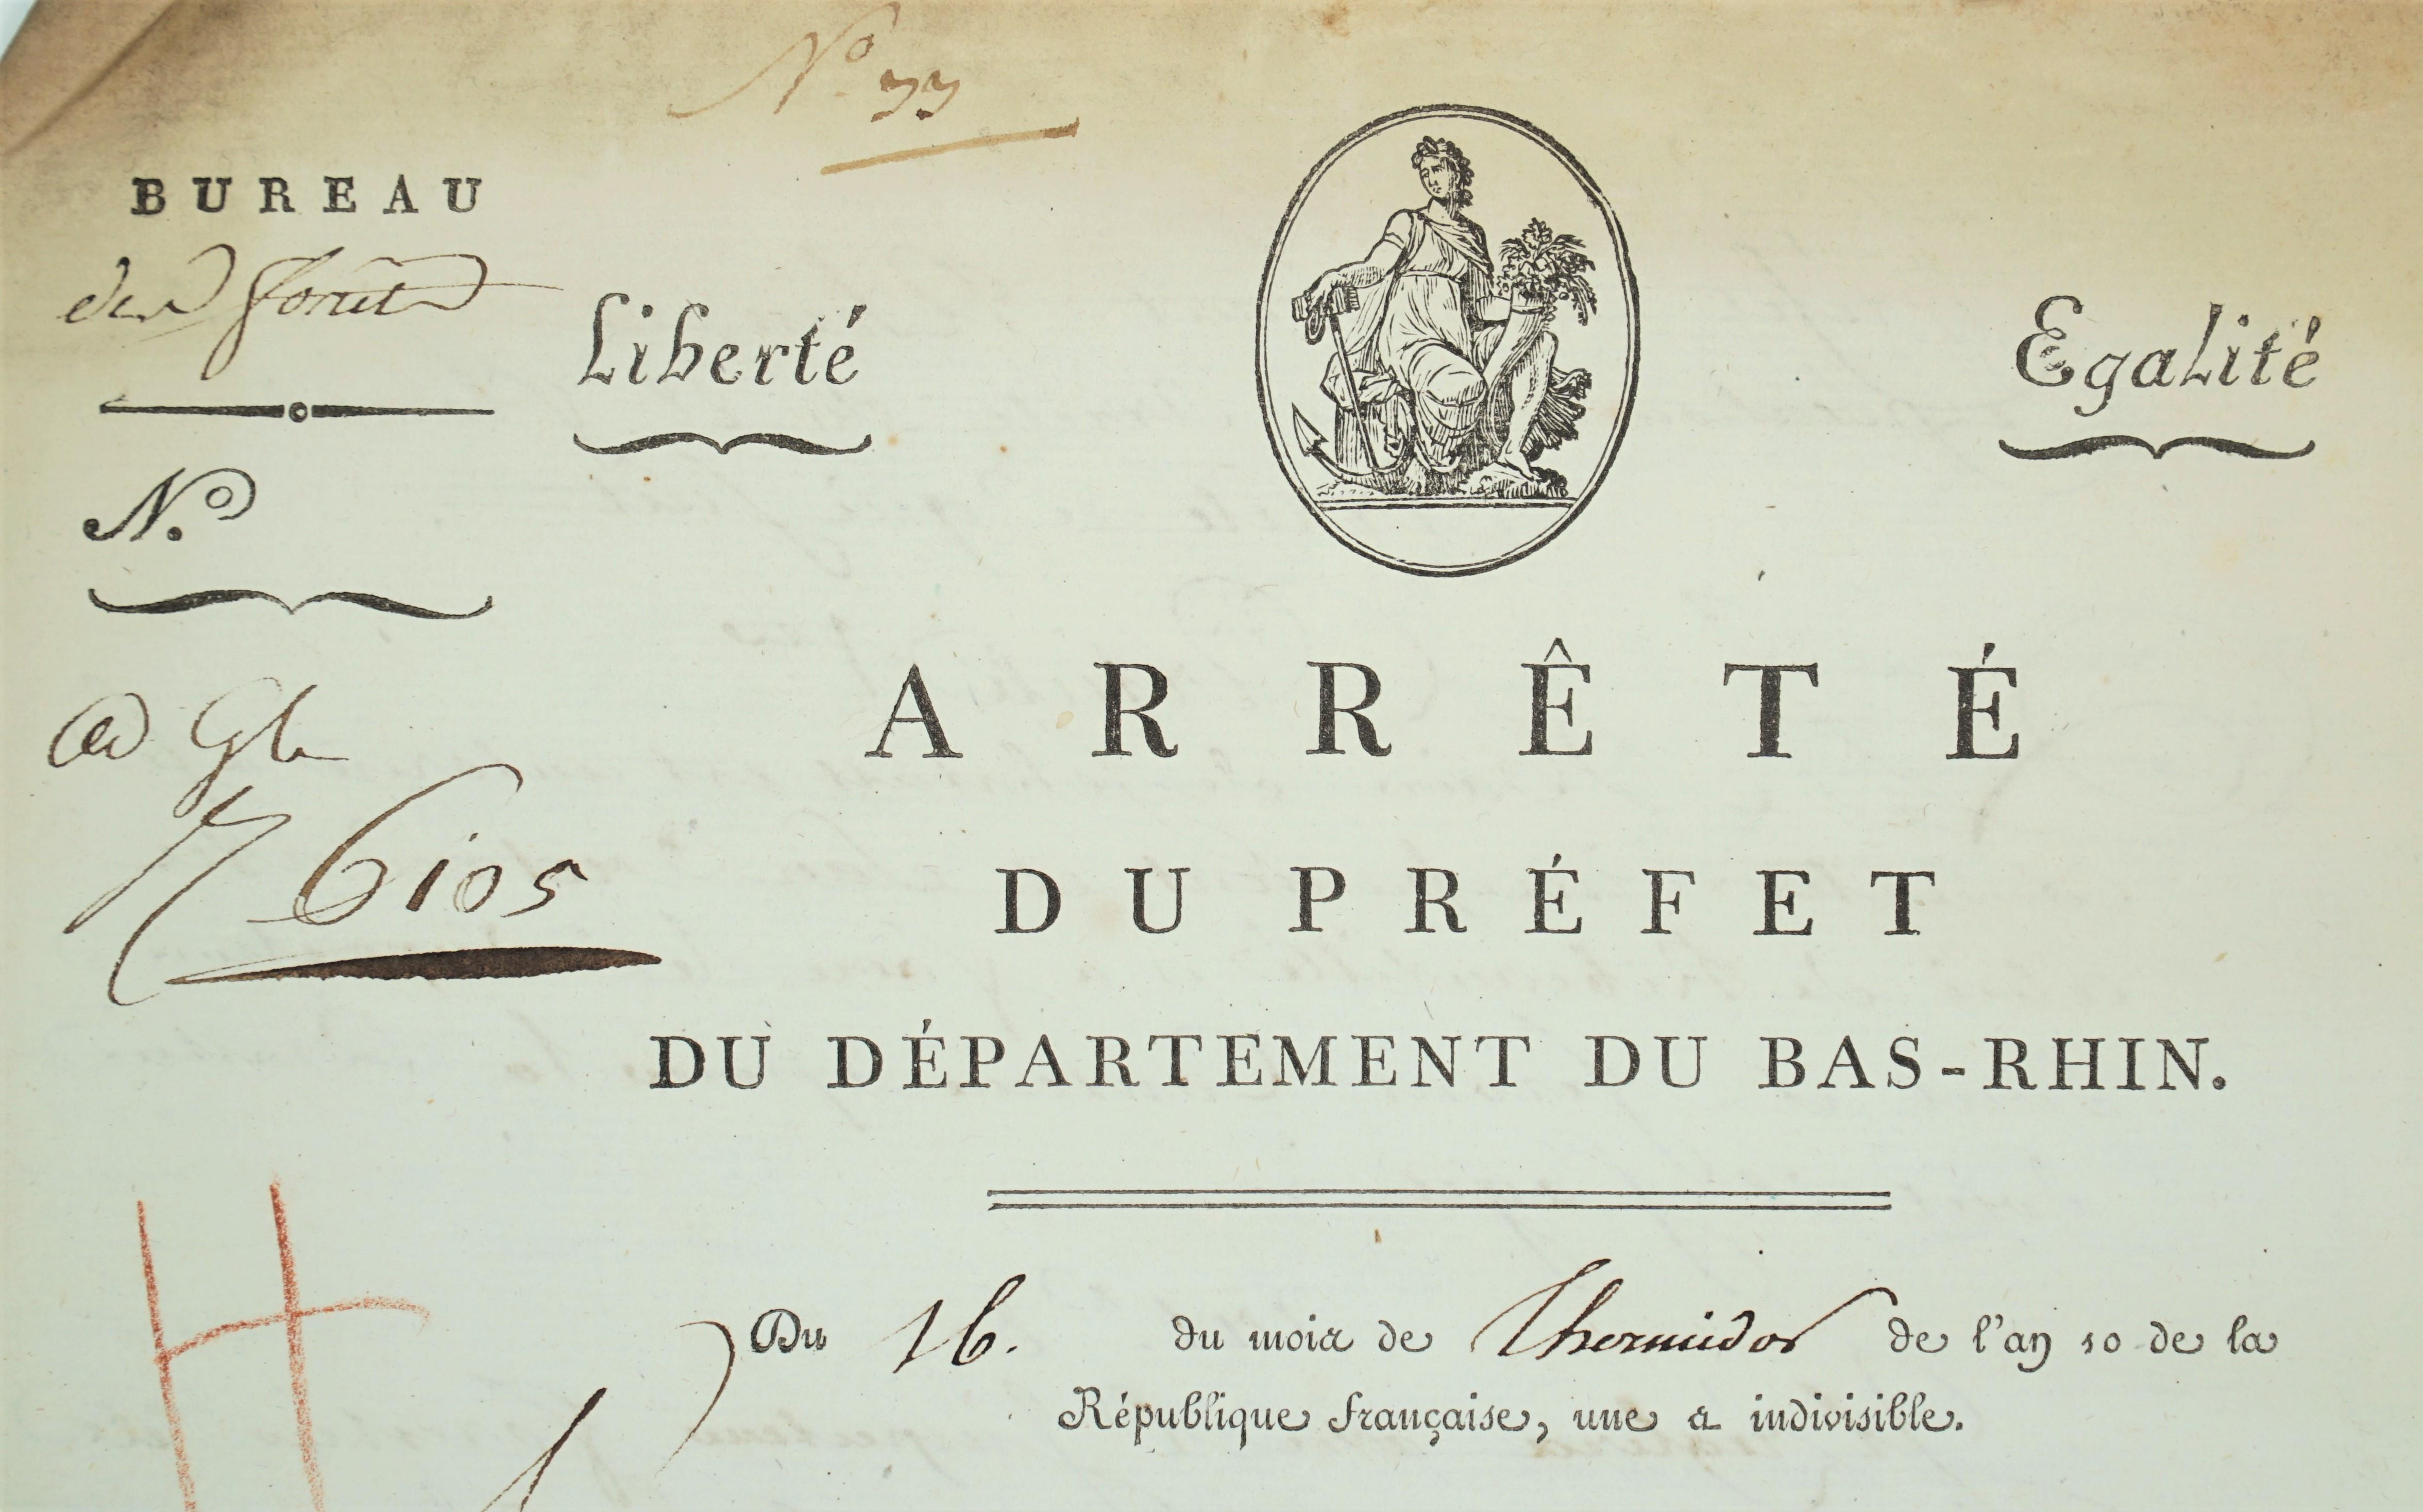 Nº 33
BUREAU
des forêts
Liberté
Egalité
N.º
ad Gl
6105
ARRÊTÉ
DU PRÉFET
DU DÉPARTEMENT DU BAS-RHIN.
Du 16. du mois de Thermidor de l'an 10 de la
République française, une & indivisible.